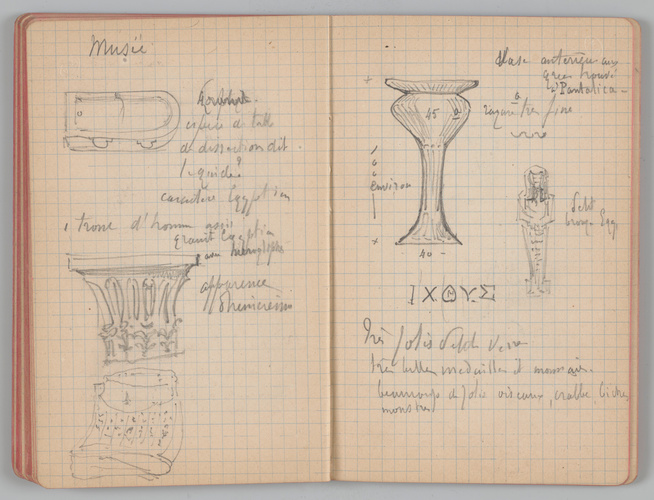 Musée
espèce de table
de dissection dit
caractère Egyptien
1 tronc d'homme assis
granit Egyptien
avec hiéroglyphe
apparence
Vase antérieur aux
grecs trouvé
à Pantalica
45
a
environ
40
petit
bronze Egy
ΙΧΘΥΣ
très jolis petits verre
très belles medailles et monnaie.
beaucoup de jolis oiseaux, crabbe, biche,
monstres